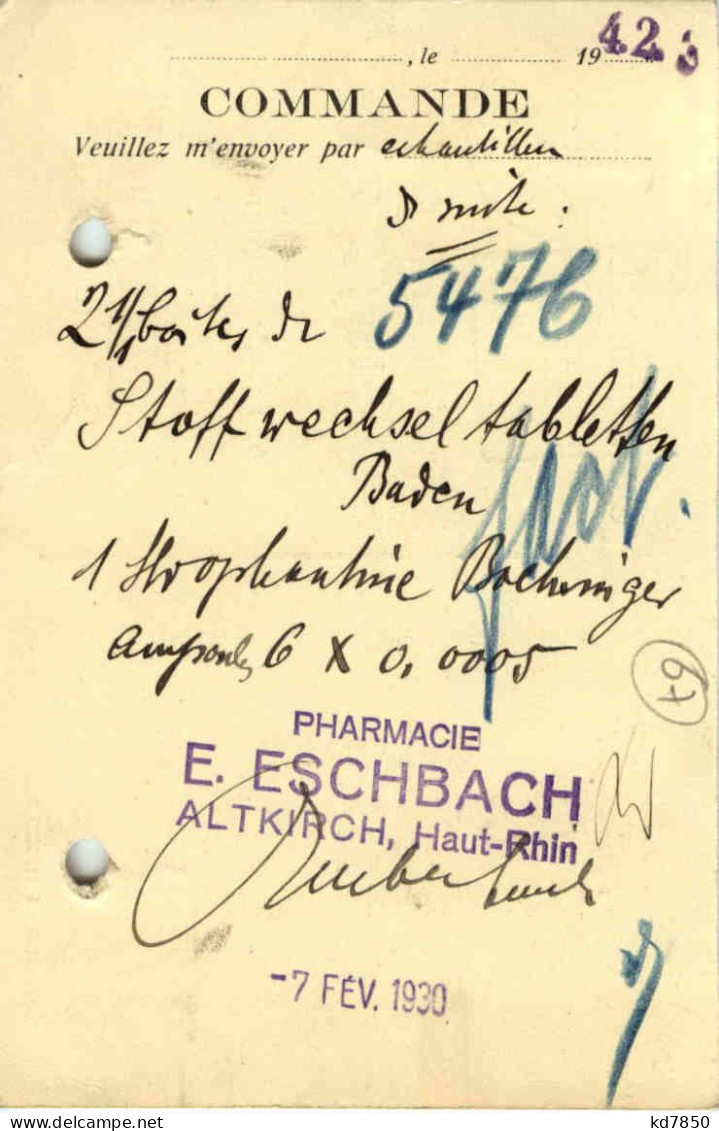 , le 19 423
COMMANDE
Veuillez m'envoyer par echantillon
d suite.
5476
2 1/1 boites de
Stoffwechseltabletten
Baden
1 Strophantine Boehringer
Ampoules 6 x 0,0005
67
PHARMACIE
E. ESCHBACH
ALTKIRCH, Haut-Rhin
-7 FÉV. 1930
kd7850